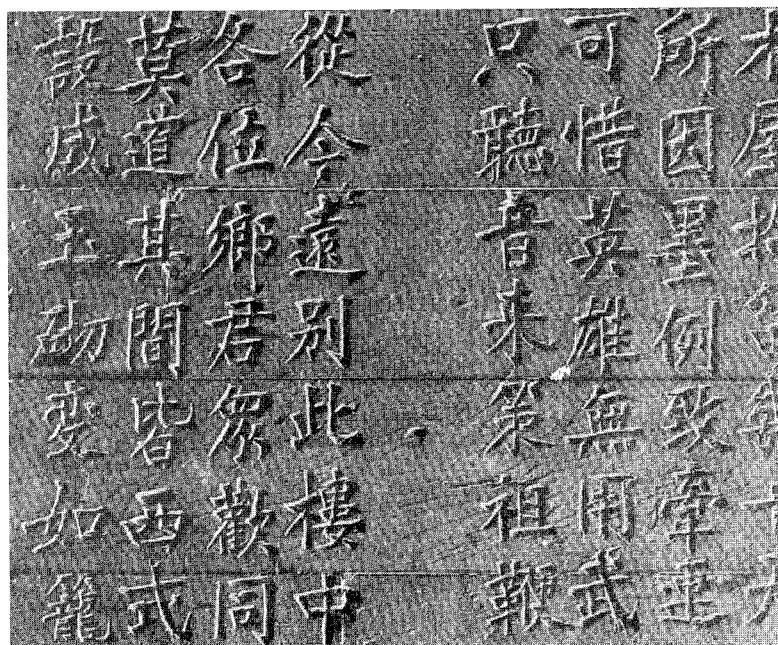 木屋
所因墨例致牽連
可惜英雄無用武
只聽音來策祖鞭
從今遠別此樓中
各位鄉君眾歡同
莫道其間皆西式
設成玉砌變如籠